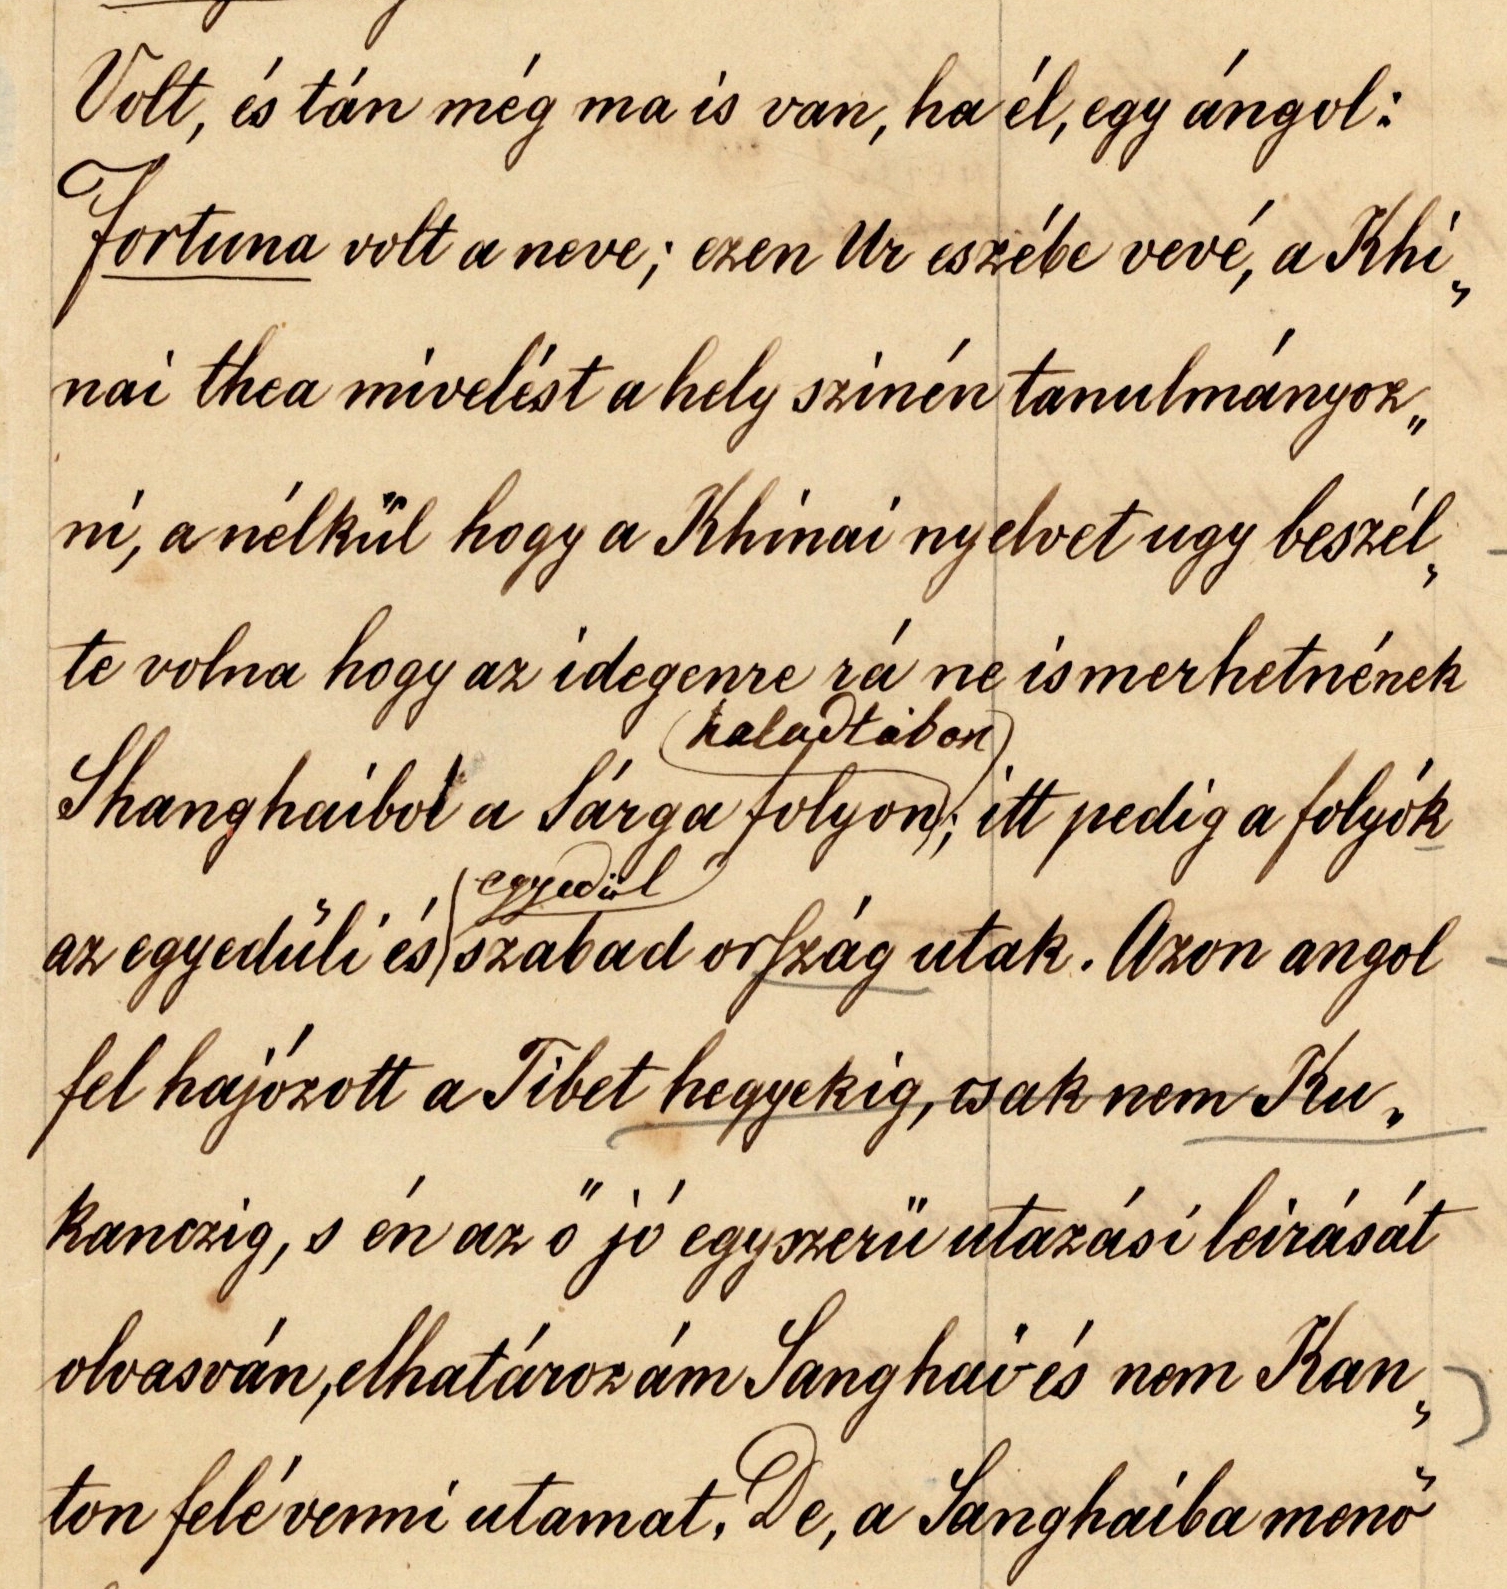 Volt, és tán még ma is van, ha él, egy ángol:
Fortuna volt a neve; ezen Ur eszébe vevé, a Khi„
nai thea mivelést a hely szinén tanulmányoz„
ni, a nélkül hogy a Khinai nyelvet ugy beszél„
te volna hogy az idegenre rá ne ismerhetnének
haladtában
Shanghaibol a Sárga folyon; itt pedig a folyók
egyedül
az egyedüli és szabad ország utak. Azon angol
fel hajózott a Tibet hegyekig, csak nem Ku„
kanczig, s én az ő jó egyszerü utazási leirását
olvasván, elhatározám Sanghai és nem Kan„
ton felé venni utamat. De, a Sanghaiba menő